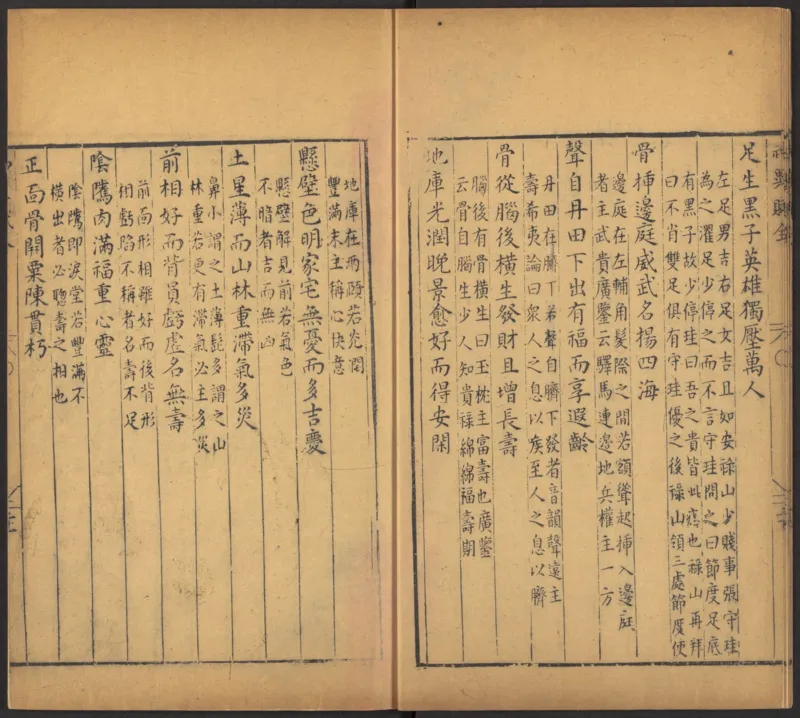 足生黑子英雄獨壓萬人
左足男吉右足女吉且如安祿山少賤事張守珪
為之濯足少停之而不言守珪問之曰節度足底
有黑子故少停珪曰吾之貴皆此痣也祿山再拜
曰不肖雙足俱有守珪優之後祿山領三處節度使
骨挿邊庭威武名揚四海
邊庭在左輔角髮際之間若額聳起挿入邊庭
者主武貴廣鑒云驛馬連邊地兵權主一方
聲自丹田下出有福而享遐齡
丹田在臍下若聲自臍下發者音韻聲遠主
壽希夷論曰衆人之息以喉至人之息以臍
骨從腦後橫生發財且增長壽
腦後有骨橫生曰玉枕主富壽也廣鑒
云骨自腦生少人知貴祿綿綿福壽期
地庫光潤晚景愈好而得安閑
地庫在兩頤若光闊
豐滿末主稱心快意
懸壁色明家宅無憂而多吉慶
懸壁解見前若氣色
不暗者吉而無凶
土星薄而山林重滯氣多災
鼻小謂之土薄髭多謂之山
林重若更有滯氣必主多災
前相好而背負虧虛名無壽
前面形相雖好而後背形
相虧陷不稱者名壽不足
陰騭肉滿福重心靈
陰騭即淚堂若豐滿不
橫出者必聰壽之相也
正面骨開粟陳貫朽